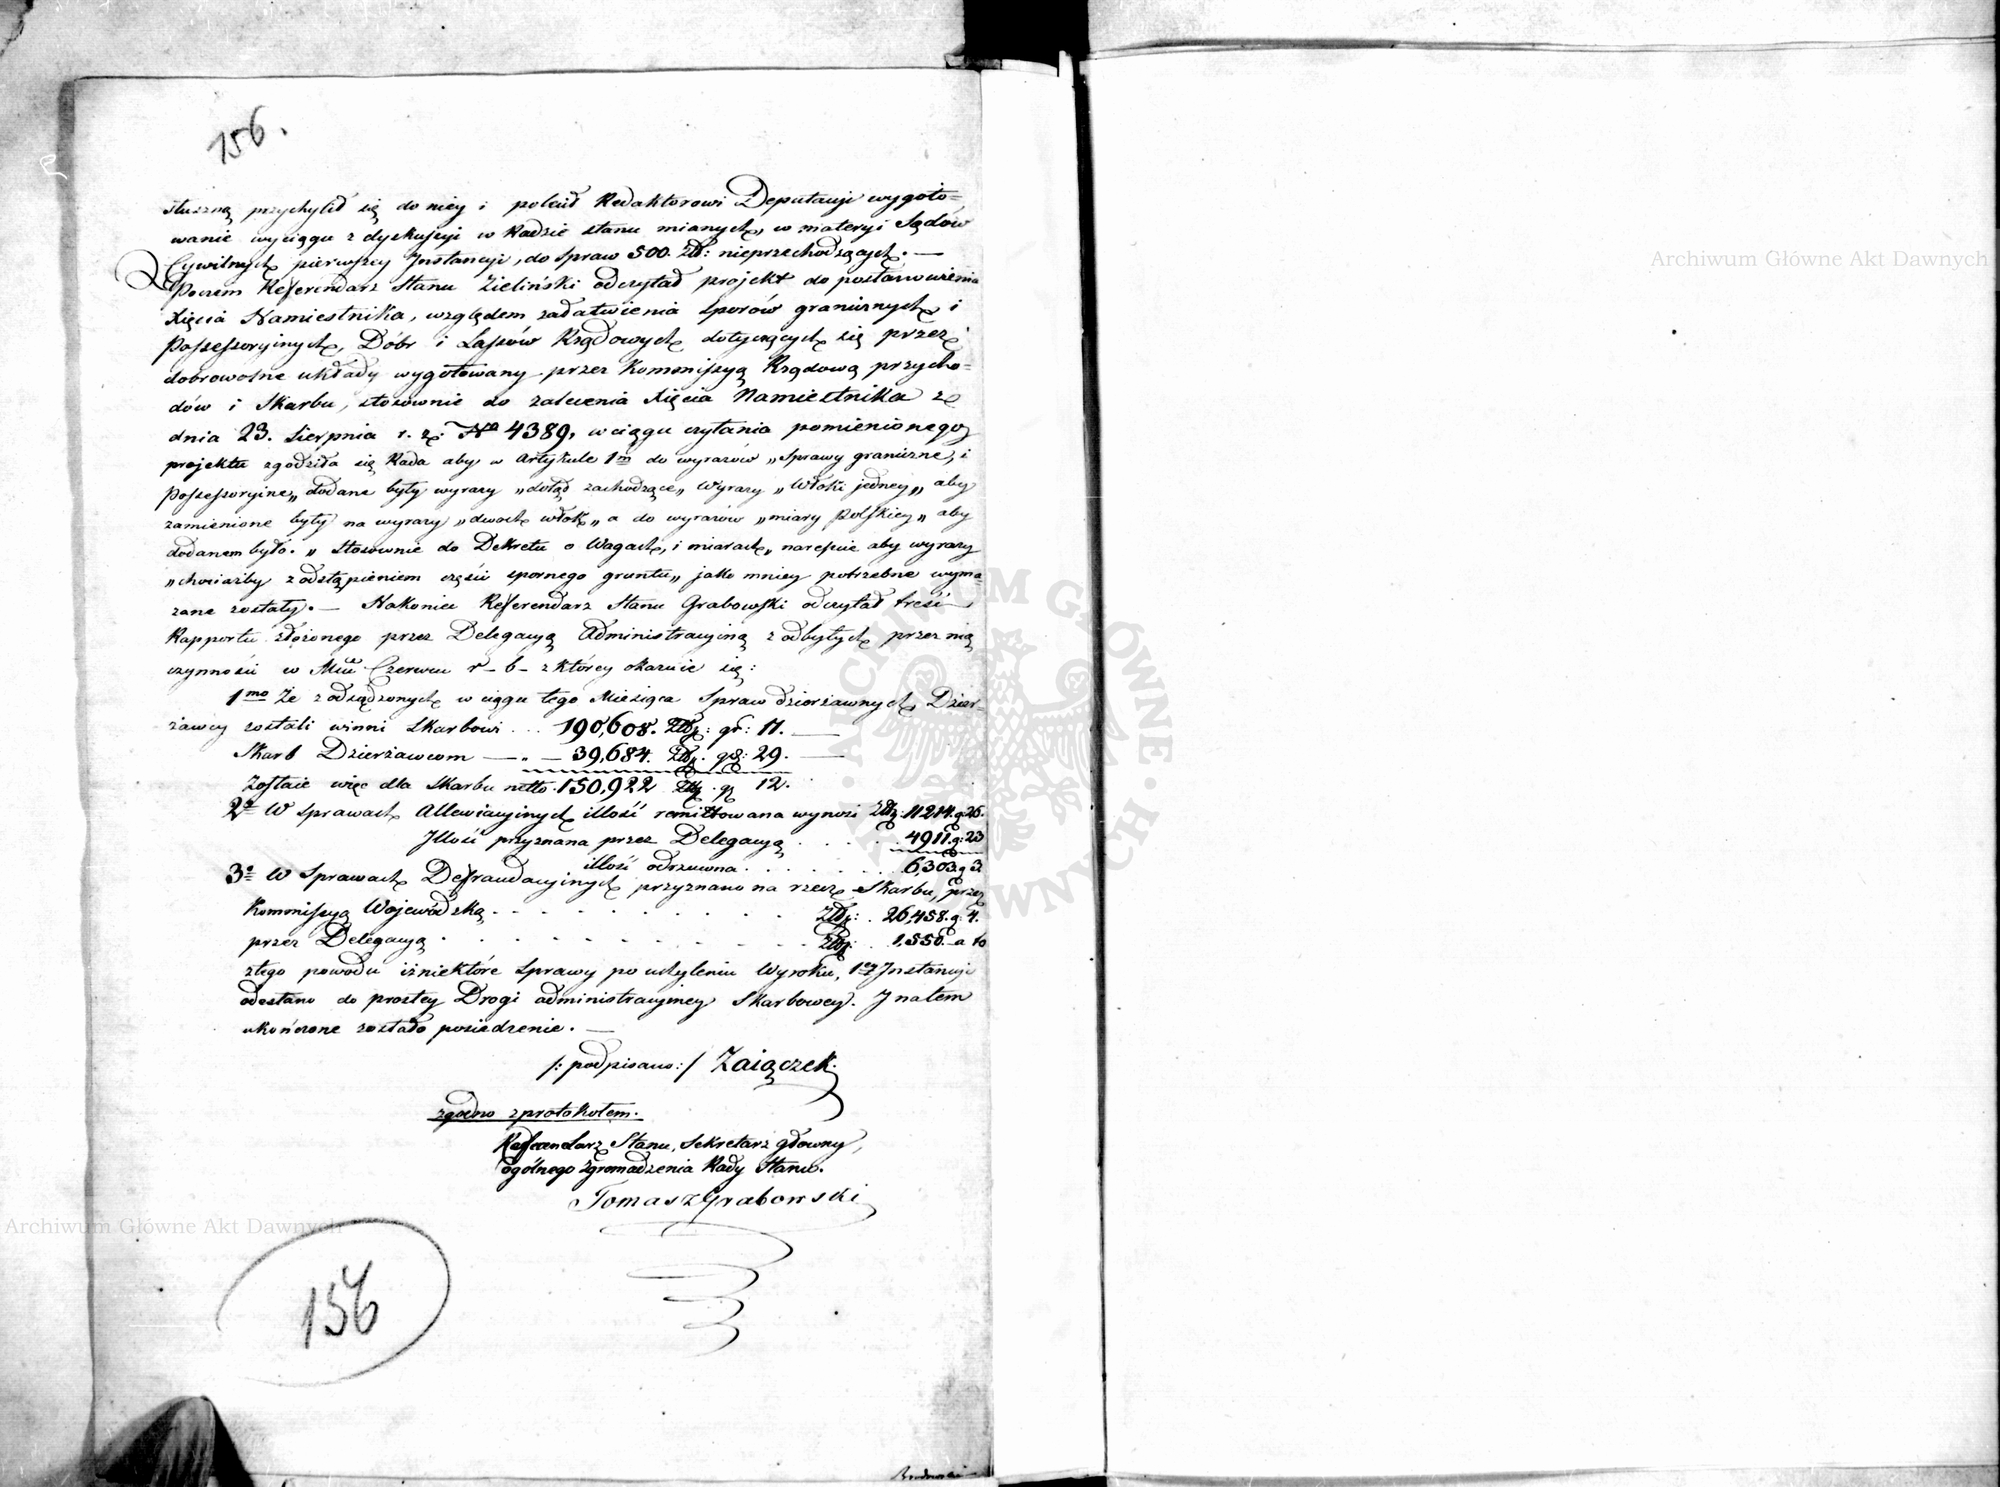 156.
słuszną przychylił się do niey i polecił Redaktorowi Deputacyi wygoto=
wanie wyciągu z dyskussyi w Radzie Stanu mianych, w materyi Sądów
Cywilnych pierwszey Instancyi, do spraw 500. Złł: nieprzechodzących. —
Poczem Referendarz Stanu Zieliński odczytał projekt do postanowienia
Xięcia Namiestnika, względem załatwienia sporów granicznych i
Possessoryinych, Dóbr i Lassów Rządowych dotyczących się przez
dobrowolne układy wygotowany przez Kommissyą Rządową przycho=
dów i Skarbu, stosownie do zalecenia Xięcia Namiestnika z
dnia 23. Sierpnia r. z. No 4389, w ciągu czytania pomienionego
projektu zgodziła się Rada aby w Artykule 1m do wyrazów „Sprawy graniczne, i
Possessoryine„ dodane były wyrazy „dotąd zachodzące„ Wyrazy „Włoki jedney„ aby
zamienione były na wyrazy „dwóch włók„ a do wyrazów „miary Polskiey„ aby
dodanem było. „Stosownie do Dekretu o Wagach, i miarach„ nareście aby wyrazy
„chociażby z odstąpieniem części spornego gruntu„ jako mniey potrzebne wyma=
zane zostały. — Nakoniec Referendarz Stanu Grabowski odczytał treść
Rapportu złożonego przez Delegacyą Administracyiną z odbytych przez nią
czynności w Mcu Czerwcu r – b – z którey okazuie się:
1mo Że z osądzonych w ciągu tego Miesiąca Spraw dzierżawnych Dzier=
żawcy zostali winni Skarbowi . . . 190,608. Złłp: gr: 11. —
Skarb Dzierżawcom — . — 39,684. Złłp. gr: 29. —
Zostaie więc dla Skarbu netto . 150,922 Złłp. gr 12.
2o W sprawach Allewiacyinych illość remittowana wynosi Złłp: 11214. g: 26.
Illość przyznana przez Delegacyą . . . . . 4911. g: 23
illość odrzucona . . . . . . . 6,303. g 3.
3o W Sprawach Defraudacyinych przyznano na rzecz Skarbu, przez
Kommissyą Wojewódzką . . . . . . . . . Złłp: . 26,458. g: 4.
przez Delegacyą . . . . . . . . . Złłp: . 1,550. – a to
z tego powodu iż niektóre Sprawy po uchyleniu Wyroku, 1ey Instancyi
odesłano do prostey Drogi administracyiney Skarbowey. I na tem
ukończone zostało posiedzenie. —
/: podpisano :/ Zaiączek.
zgodno z protokołem.
Referendarz Stanu, Sekretarz główny,
ogólnego Zgromadzenia Rady Stanu.
Tomasz Grabowski
156
Archiwum Główne Akt Dawnych
Archiwum Główne Akt Dawnych
ARCHIWUM GŁÓWNE · AKT DAWNYCH ·